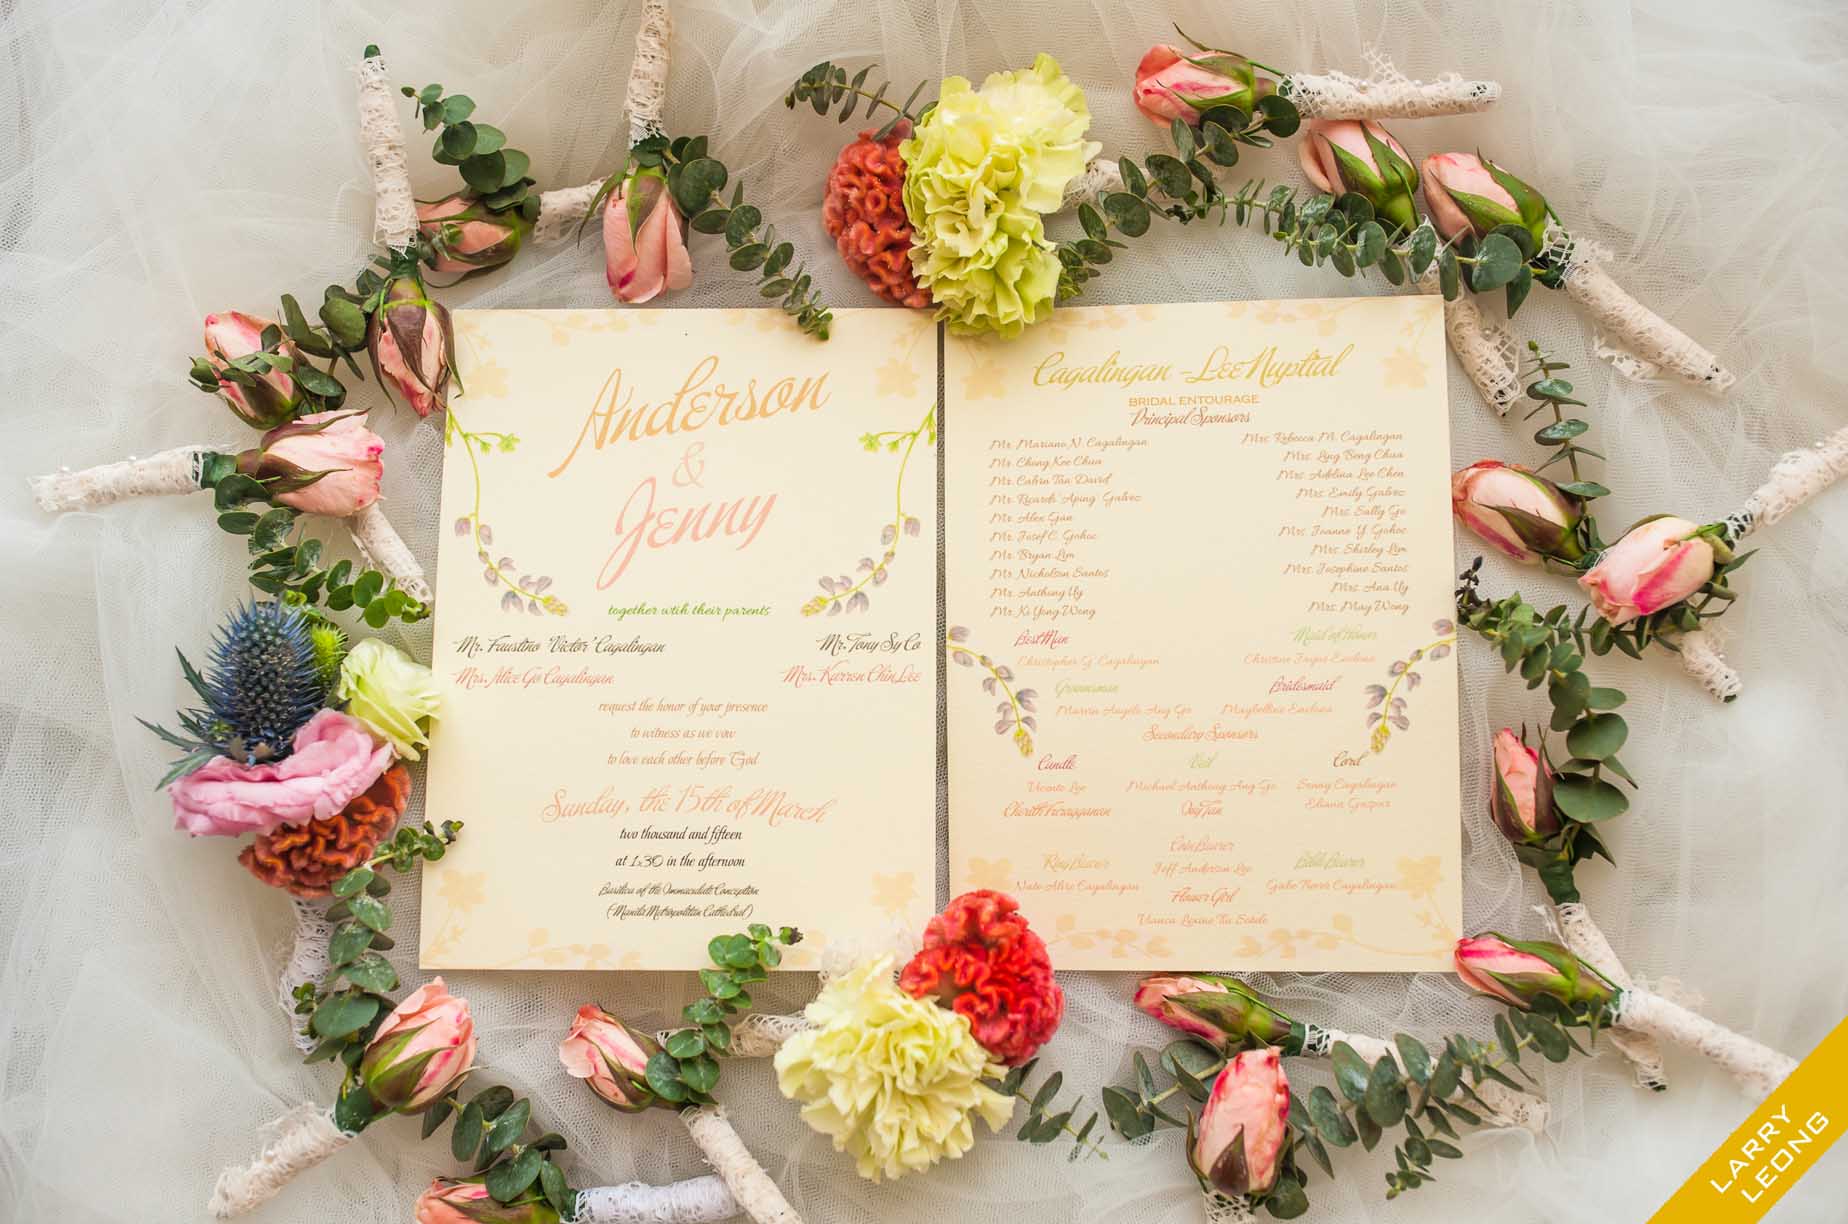 Anderson
&
Jenny
together wtih their parents
Mr. Faustino 'Victor' Cagalingan
Mr. Tony Sy Co
Mrs. Alice Go Cagalingan
Mrs. Karren Chin Lee
request the honor of your presence
to witness as we vow
to love each other before God
Sunday, the 15th of March
two thousand and fifteen
at 1:30 in the afternoon
Basilica of the Immaculate Conception
(Manila Metropolitan Cathedral)
Cagalingan - Lee Nuptial
BRIDAL ENTOURAGE
Principal Sponsors
Mr. Mariano N. Cagalingan
Mrs. Rebecca M. Cagalingan
Mr. Chong Kee Chua
Mrs. Ling Beng Chua
Mr. Calvin Tan David
Mrs. Adelina Lee Chen
Mr. Ricardo 'Aping' Galvez
Mrs. Emily Galvez
Mr. Alex Gan
Mrs. Sally Go
Mr. Josef C. Gohoc
Mrs. Joanne Y. Gohoc
Mr. Bryan Lim
Mrs. Shirley Lim
Mr. Nicholson Santos
Mrs. Josephine Santos
Mr. Anthony Uy
Mrs. Ana Uy
Mr. Ki Yong Wong
Mrs. May Wong
Best Man
Maid of Honor
Christopher G. Cagalingan
Christine Joyce
Groomsman
Bridesmaid
Marvin Angelo Ang Go
Maybelline
Secondary Sponsors
Candle
Veil
Cord
Vicente Lee
Michael Anthony Ang Go
Cagalingan
Eliana Gaspar
Tan
Coin Bearer
Ring Bearer
Jeff Anderson Lee
Bible Bearer
Cagalingan
Gabe Cagalingan
Flower Girl
LARRY
LEONG